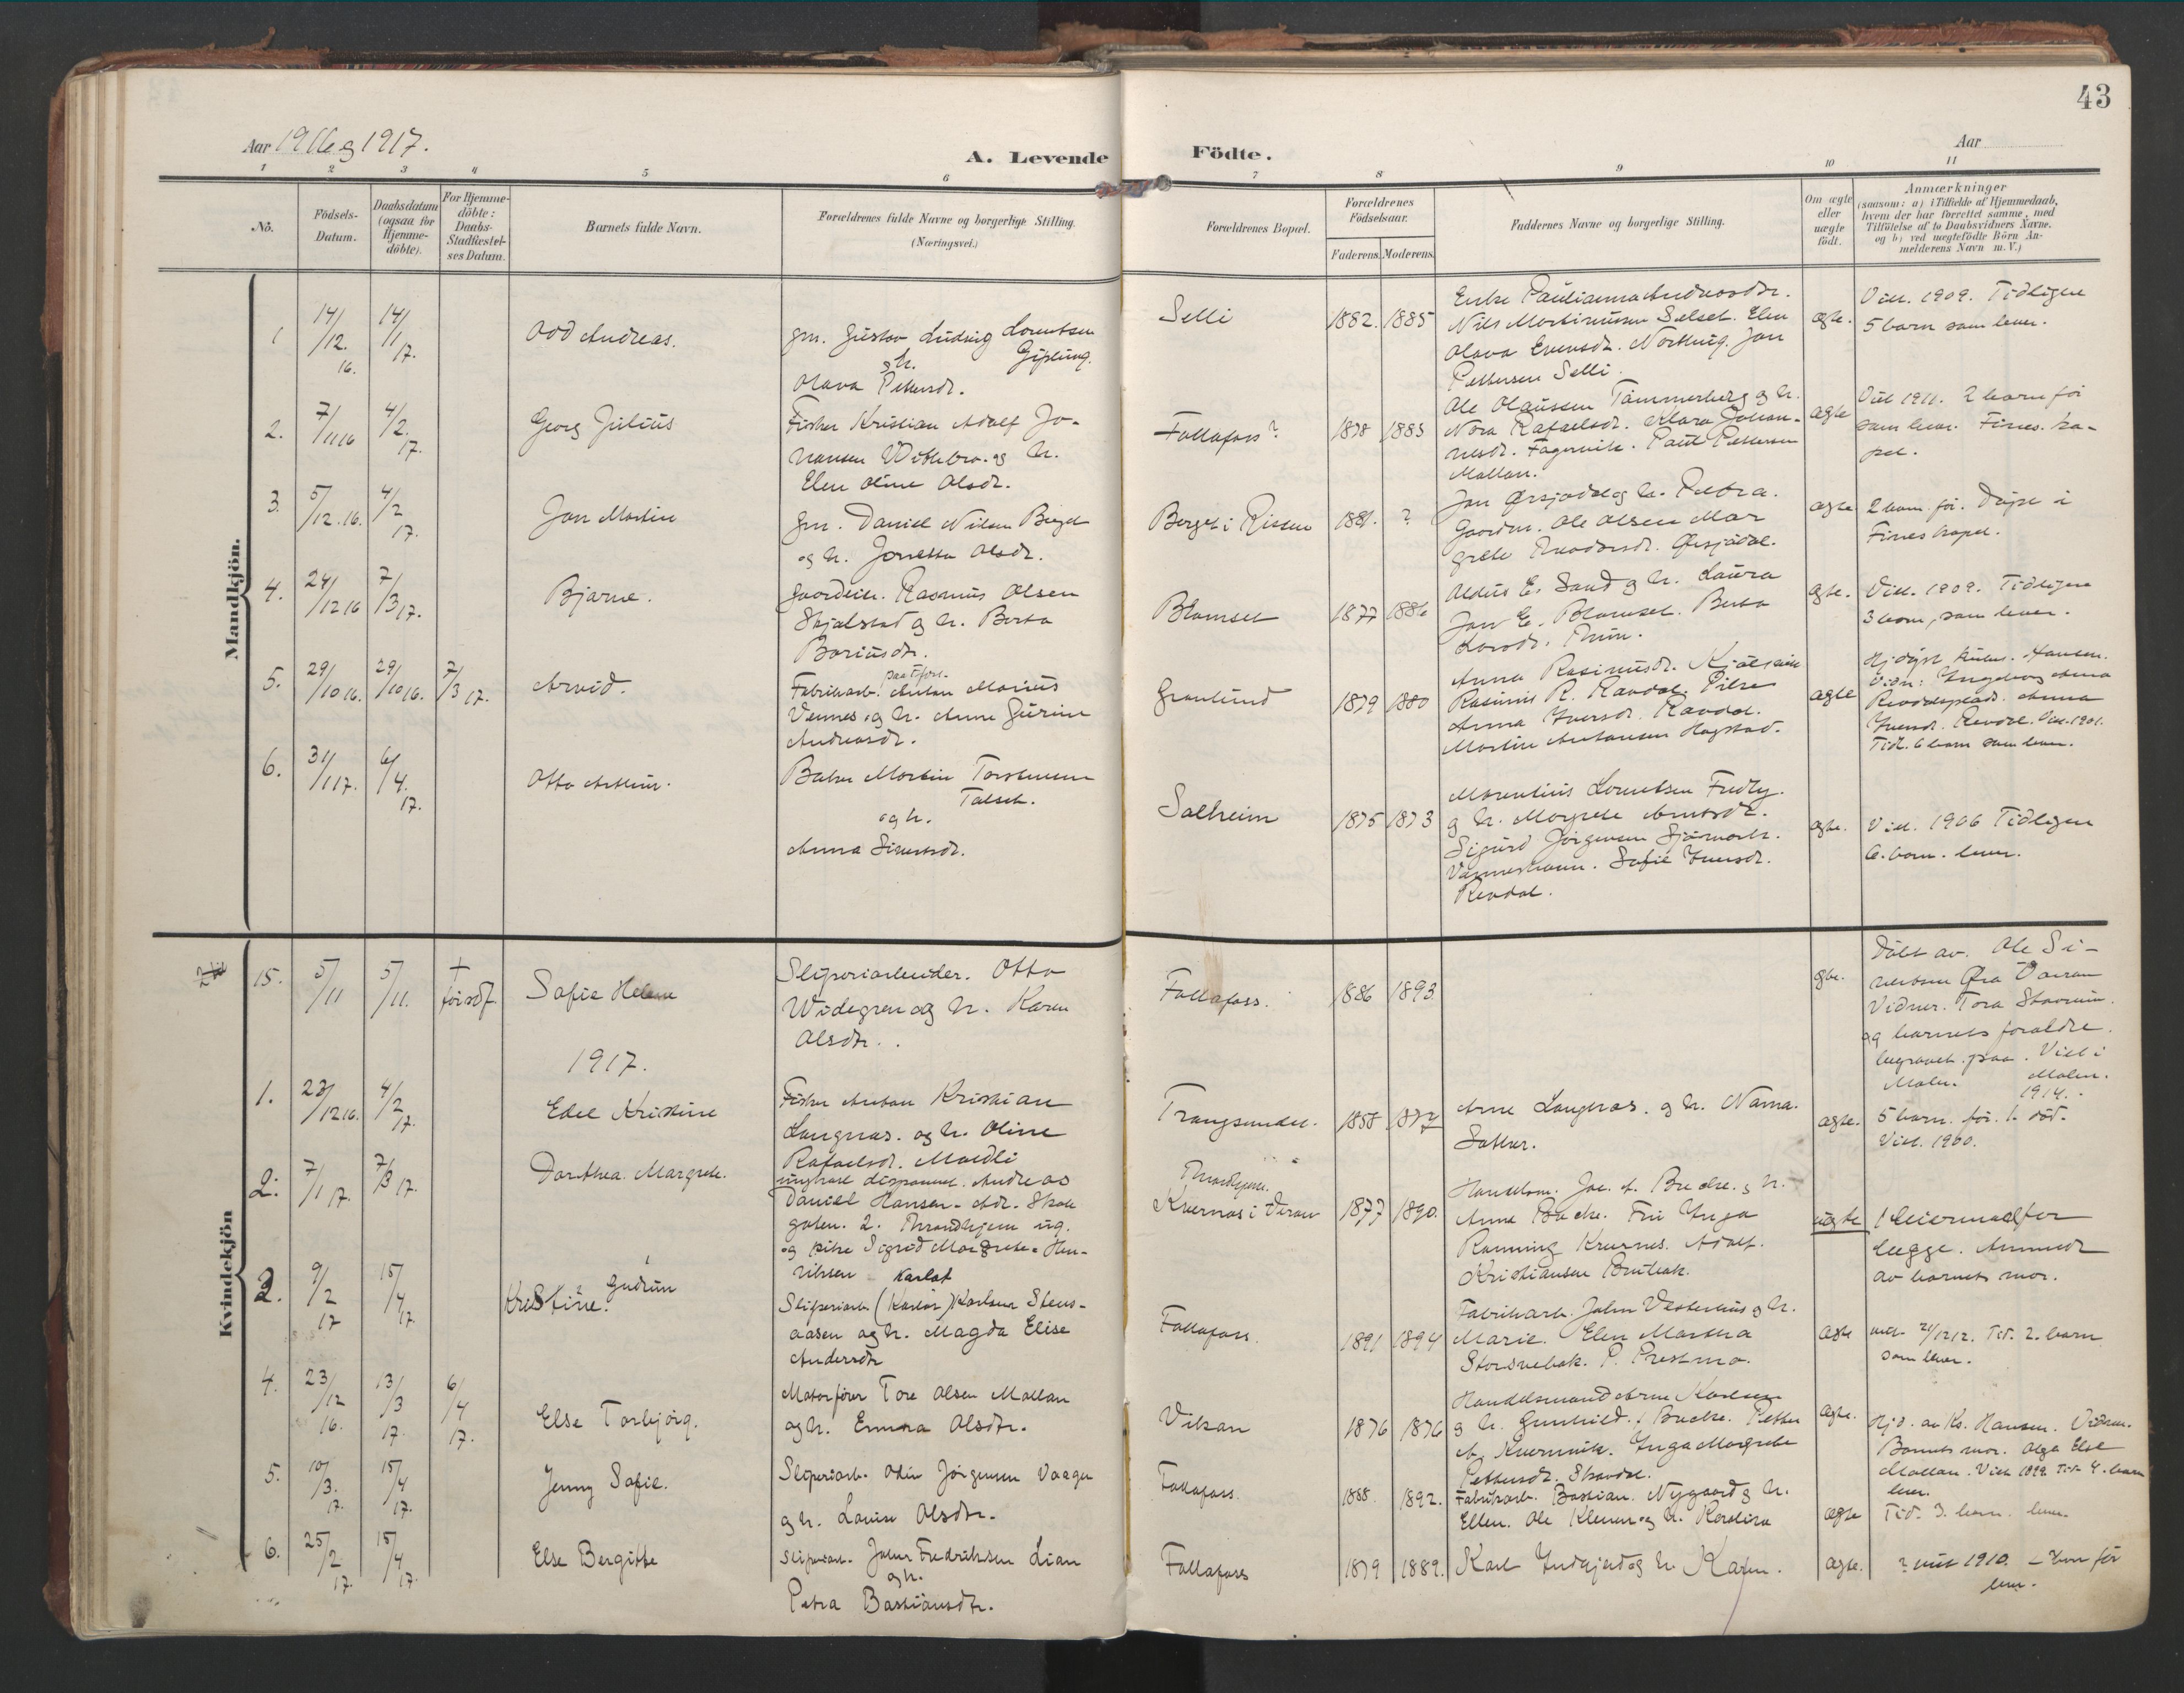 43
Aar 1916 og 1917.
A. Levende Födte.
Aar
1 2 3 4 5 6 7 8 9 10 11
No.
Födsels-Datum.
Daabsdatum (ogsaa for Hjemme-döbte).
For Hjemme-döbte: Daabs-Stadfæstel-ses Datum.
Barnets fulde Navn.
Forældrenes fulde Navne og borgerlige Stilling.
(Næringsvei.)
Forældrenes Bopæl.
Forældrenes Födselsaar.
Faderens. Moderens.
Faddernes Navne og borgerlige Stilling.
Om ægte eller uægte födt.
Anmærkninger
(saasom: a) i Tilfælde af Hjemmedaab,
hvem der har forrettet samme, med
Tilföielse af to Daabsvidners Navne.
og b) ved uægtefödte Börn An-
melderens Navn m.V.)
Mandkjön.
1 14/12. 16. 14/11 17. Odd Andreas.
gm. Gustav Ludvig Lorentsen
og h. Gipling.
Olava Pettersdr.
Selli 1882. 1885
Enke Paulianna Andreasdr.
Nils Martinusen Selset. Elen
Olava Evensdr. Nordkvig. Jan
Pettersen Selli.
ægte.
Viet. 1909. Tidligere
5 barn som lever.
2. 7/11 16 4/2. 17. Georg Julius
Fisker Kristian Adolf Jo-
hansen Vitlebro. og h.
Elen Oline Olsdr.
Follafoss? 1878 1885
Ole Olaussen Tømmerberg og h.
Nora Rafaelsdr. Klara Johan-
nesdr. Fagervik. Paul Pettersen
Mallan.
ægte
Viet 1911. 2 barn før
som lever. Finnes. ka-
pel.
3. 5/12. 16. 4/2 17. Jon Martin
gm. Daniel Nilsen Berget
og h. Jonetta Olsdr.
Berget i Rissen 1881. ?
Jon Ørsjødal og h. Petra.
Gaardm. Ole Olsen Mar
grete Teodorsdr. Ørsjødal.
ægte
2 barn. før. Døpt i
Finnes kapel.
4. 24/12 16 7/3 17. Bjarne.
Gaardeier. Rasmus Olsen
Skjelstad og h. Berta
Bariusdr.
Blomset 1877 1886
Aldus E. Sand og h. Laura
Jon E. Blomset. Berta
Larsdr. Thun.
ægte.
Viet. 1909. Tidligere
3 barn, som lever.
5. 29/10 16. 29/10 16. 7/3 17. Arvid.
Fabrikarb. Anton Marius
Vennes og h. Anne Gurine
Andreasdr.
Granlund 1879 1880
Anna Rasmusdr. Kjølseim
Rasmus R. Ravdal. Pike
Anna Iversdr. Ravdal.
Martin Antonsen Hagstad.
ægte
Hjdøpt Hansen.
Vidn: Ingeborg Anna
Anna
Iversdr. Revdal. Viet. 1901.
Tidl. 6 barn som lever.
6. 31/1 17. 6/4. 17. Otto Arthur.
Baker Martin Torstensen
Talset.
og h.
Anna Sivertsdr.
Solheim 1875 1873
Morentius Lorentsen Fredly.
og h. Margrete Arntsdr.
Sigurd Jørgensen Sjømark.
Vannestrann. Sofie Iversdr.
Revdal.
ægte.
Viet. 1906 Tidligere
6. barn. lever.
Kvindekjön
15. 5/11 5/11. † før sdf. Sofie Helene
Sliperiarbeider. Otto
Widegren og h. Karen
Olsdtr.
Follafoss. 1886 1893.
gte.
Døbt av. Ole Si-
vertsen Øra Værran
Vidner. Tora Stavrum.
og barnets forældre.
begravet. paa. Viet i
Malm. Malm.
1914.
1917.
1. 23/12 16. 4/2 17. Edel Kristine
Fisker Anton Kristian
Langnæs. og h. Oline
Rafaelsdr. Moedli
Trangsundet. 1858 1877
Arne Langnæs. og h. Nanna.
Sakker.
ægte.
5 barn. før. 1. død.
Viet. 1900.
2. 7/1 17. 7/3 17. Dorthea Margrete.
ungkarl disponent. Andreas
Daniel Hansen. Adr. Skole
gaten. 2. Trondhjem ug.
og pike Sigrid Margrete Hen-
riksen
Trondhjem.
Kvernæs i Veran 1877 1890.
Handelsm. Joe. A. Buche. og h.
Anne Buche. Fru Inga
Ranning Kvernes. Adolf.
Kristiansen Breibak.
uægte
1 leiermaal for
begge. Anmeldt
av barnets mor.
2. 9/2 17 15/4 17 Kristine. Gudrun
Karlot
Sliperiarb (Karlot) Karlsen Stens-
aasen og h. Magda Elise
Andersdtr
Follafoss. 1891 1894
Fabrikarb. John Vesterhus og h.
Marie. Elen Martha
Storsvebak. P. Prestmo.
ægte
viet 21/12 12. Tid. 2. barn
som lever.
4. 23/12 16. 13/3 17. 6/4 17. Else Torbjørg.
Motorfører Tore Olsen Mollan
og h. Emma Olsdtr.
Vikan 1876 1876
Handelsmand Arne Karlsen
og h. Gunhild. Buche. Petter
A. Kvernvik. Inga Margrete
Pettersdr. Skavdal.
ægte.
Hjd. av Ks. Hansen. Vidner.
Barnets mor. Olga Else
Mollan. Viet 1899. Tid. 4. barn
lever.
5. 10/3. 17. 15/4 17. Jenny Sofie.
Sliperiarb. Odin Jørgensen Vaagen
og h. Lovise Olsdtr.
Follafoss. 1888. 1892.
Fabrikarb. Bastian. Nygaard og h.
Ellen. Ole Klemm og h. Karoline
ægte
Tid. 3. barn. lever.
6. 25/2 17. 15/4 17. Else Bergitte
Sliperiarb. Johan Fredriksen Lian
og h.
Petra Bastiansdtr.
Follafoss 1879 1889.
Karl Indkjød og h. Karen.
ægte.
? viet 1910. – barn før
lever.